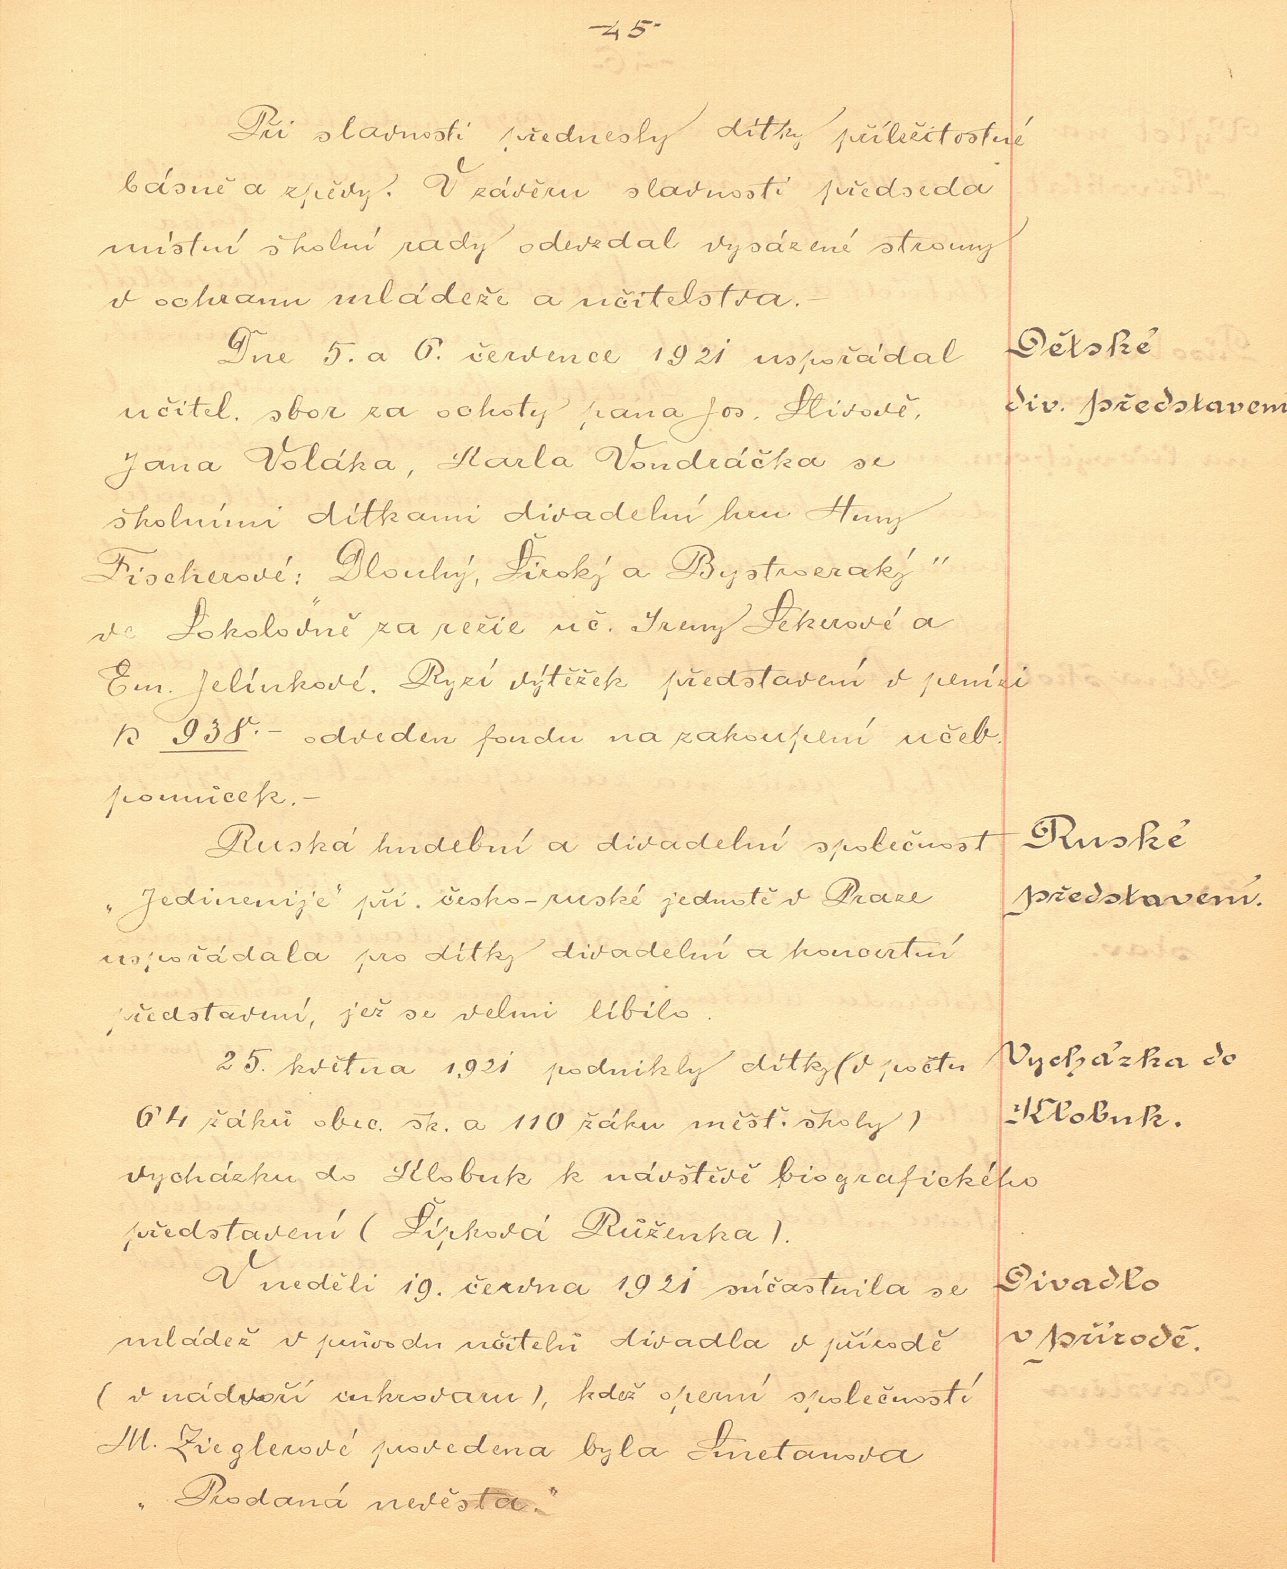 45
Při slavnosti přednesly dítky příležitostné
básně a zpěvy. V závěru slavnosti předseda
místní školní rady odevzdal vysázené stromy
v ochranu mládeže a učitelstva.-
Dne 5. a 6. července 1921 uspořádal
Dětské
učitel. sbor za ochoty pana Jos. Slívově,
div. představení
Jana Voláka, Karla Vondráčka se
školními dítkami divadelní hru Huny
Fischerové: Dlouhý, Široký a Bystrozraký"
ve Sokolovně za režie uč. Ireny Sekerové a
Em. Jelínkové. Ryzí výtěžek představení v penízi
K 938.- odveden fondu na zakoupení učeb.
pomůcek.-
Ruská hudební a divadelní společnost
Ruské
„Jedinenije" při. česko-ruské jednotě v Praze
představení.
uspořádala pro dítky divadelní a koncertní
představení, jež se velmi líbilo.
25. května 1921 podnikly dítky (v počtu
Vycházka do
64 žáků obec. šk. a 110 žáku měšť. školy)
Klobuk.
vycházku do Klobuk k návštěvě biografického
představení (Šípková Růženka).
V neděli 19. června 1921 súčastnila se
Divadlo
mládež v průvodu učitelů divadla v přírodě
v přírodě.
(v nádvoří cukrovaru), kdež operní společností
M. Zieglerové provedena byla Smetanova
„Prodaná nevěsta."